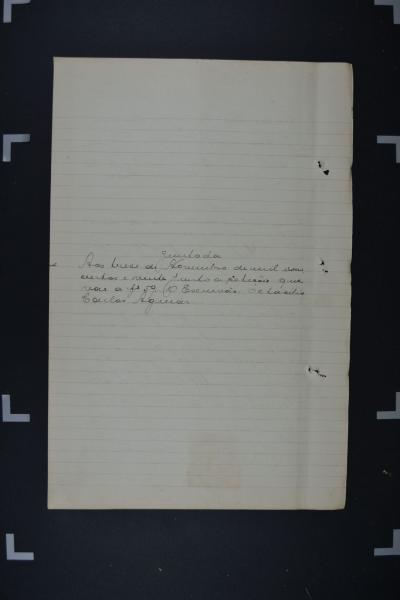 Juntada
Aos treze de Novembro de mil nove
centos e vinte junto a petição que
vae a fs 50 O Escrivão
Carlos Aguiar